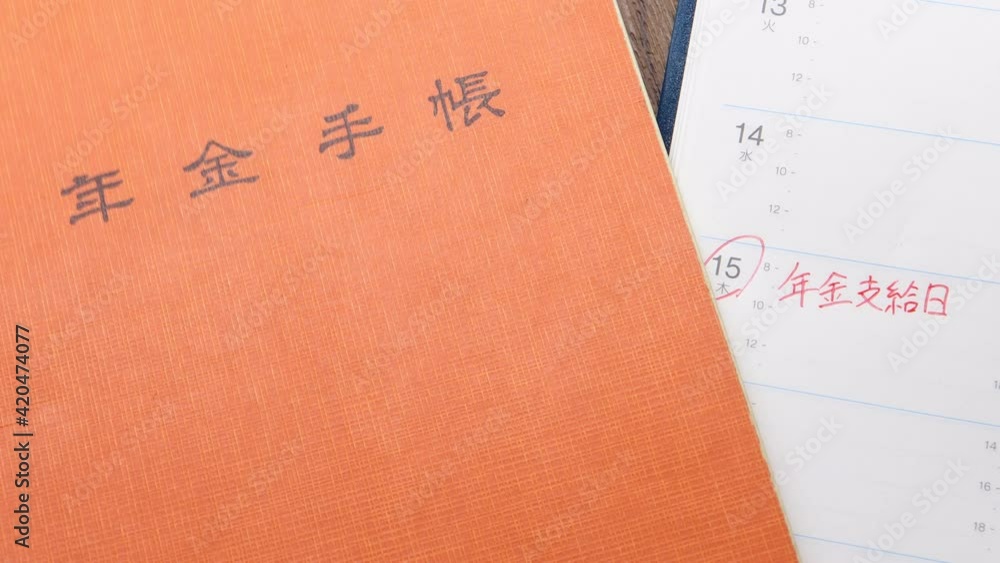 年金手帳
13
火
8 -
10 -
12 -
14
水
8 -
10 -
12 -
15
木
8 -
年金支給日
10 -
12 -
14 -
16 -
18 -
Adobe Stock | #420474077